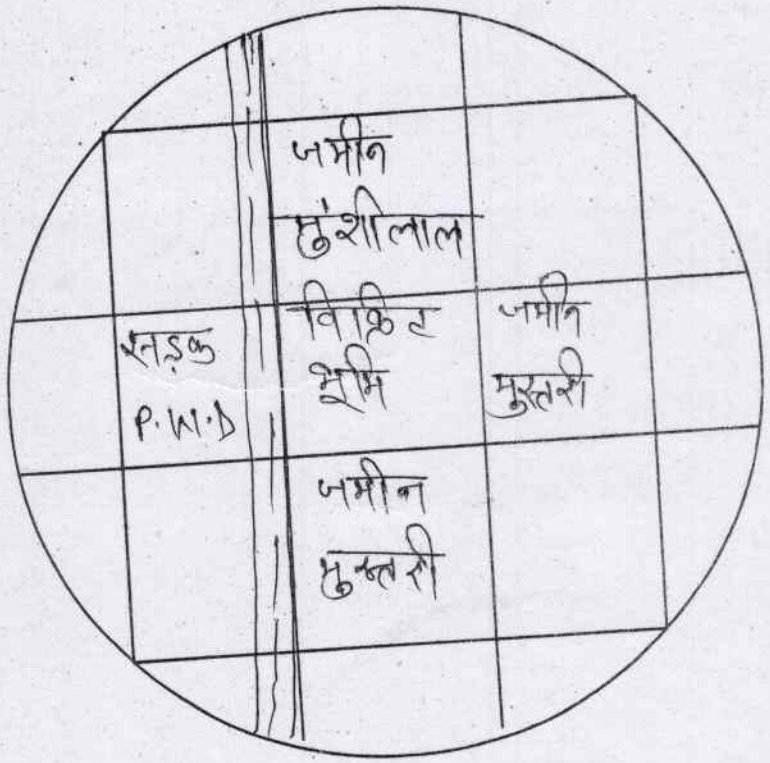 जमीन
मुंशीलाल
सड़क
P.W.D
विक्रित
भूमि
जमीन
मुस्तरी
जमीन
मुस्तरी